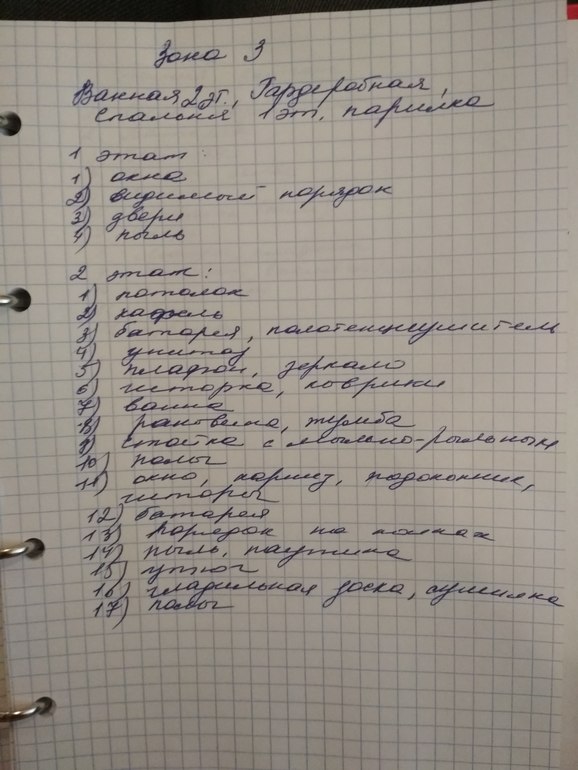 Зона 3
Ванная 2 эт., Гардеробная,
Спальня 1 эт. парилка
1 этап:
1) окна
2) видимый порядок
3) двери
4) пыль
2 этап:
1) потолок
2) кафель
3) батарея, полотенцесушитель
4) унитаз
5) плафон, зеркало
6) шторка, коврики
7) ванна
8) раковина, тумба
9) стойка с мыльно-рыльным
10) полы
11) окно, карниз, подоконник,
шторы
12) батарея
13) порядок на полках
14) пыль, паутина
15) утюг
16) гладильная доска, сушилка
17) полы